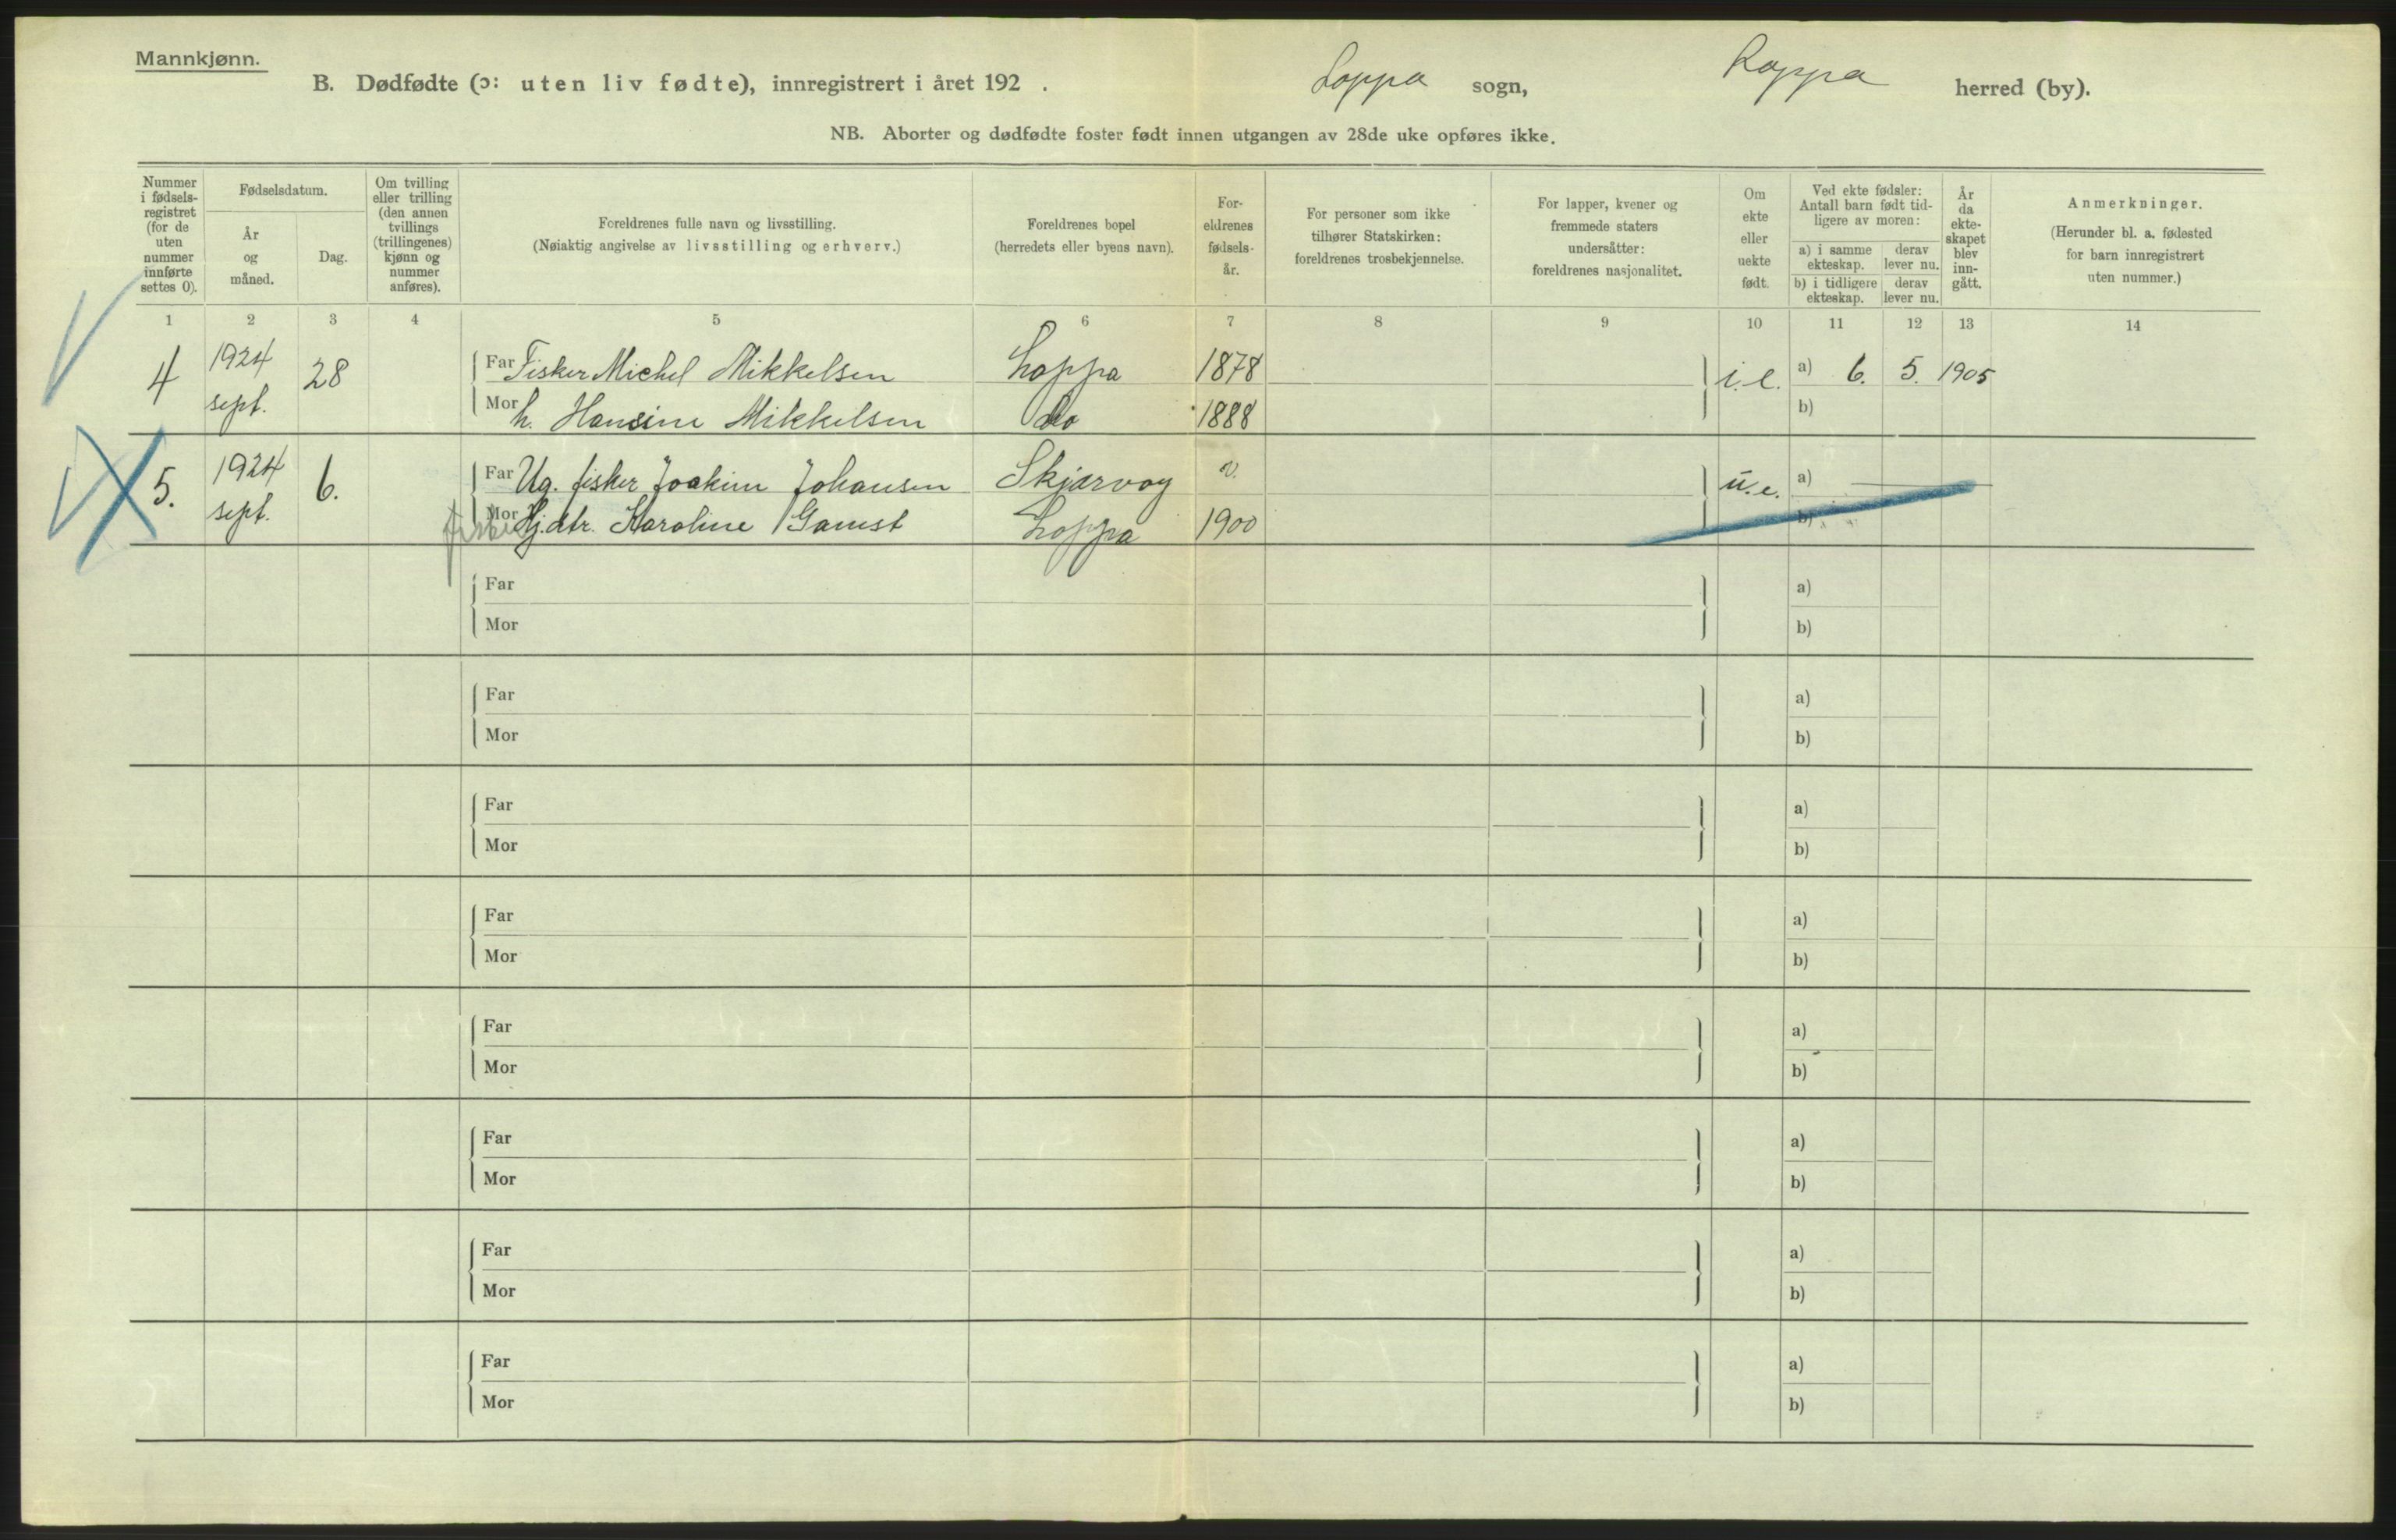 Mannkjønn.
B. Dødfødte (ɔ: uten liv fødte), innregistrert i året 192 . Loppa sogn, Loppa herred (by).
NB. Aborter og dødfødte foster født innen utgangen av 28de uke opføres ikke.
Nummer i fødsels-registret (for de uten nummer innførte settes 0).
Fødselsdatum.
År og måned.
Dag.
Om tvilling eller trilling (den annen tvillings (trillingenes) kjønn og nummer anføres).
Foreldrenes fulle navn og livsstilling.
(Nøiaktig angivelse av livsstilling og erhverv.)
Foreldrenes bopel
(herredets eller byens navn).
For-eldrenes fødsels-år.
For personer som ikke tilhører Statskirken: foreldrenes trosbekjennelse.
For lapper, kvener og fremmede staters undersåtter: foreldrenes nasjonalitet.
Om ekte eller uekte født.
Ved ekte fødsler: Antall barn født tid-ligere av moren:
a) i samme ekteskap.
derav lever nu.
b) i tidligere ekteskap.
derav lever nu.
År da ekte-skapet blev inn-gått.
Anmerkninger.
(Herunder bl. a. fødested for barn innregistrert uten nummer.)
1 2 3 4 5 6 7 8 9 10 11 12 13 14
4 1924 sept. 28 Far Fisker Michel Mikkelsen Loppa 1878 i.e. a) 6. 5. 1905
Mor h. Hansine Mikkelsen do 1888 b)
5. 1924 sept. 6. Far Ug. fisker Joakim Johansen Skjærvøy u.e. a)
Mor Hj. dtr. Karoline Gamst Loppa 1900 b)
Far a)
Mor b)
Far a)
Mor b)
Far a)
Mor b)
Far a)
Mor b)
Far a)
Mor b)
Far a)
Mor b)
Far a)
Mor b)
Far a)
Mor b)